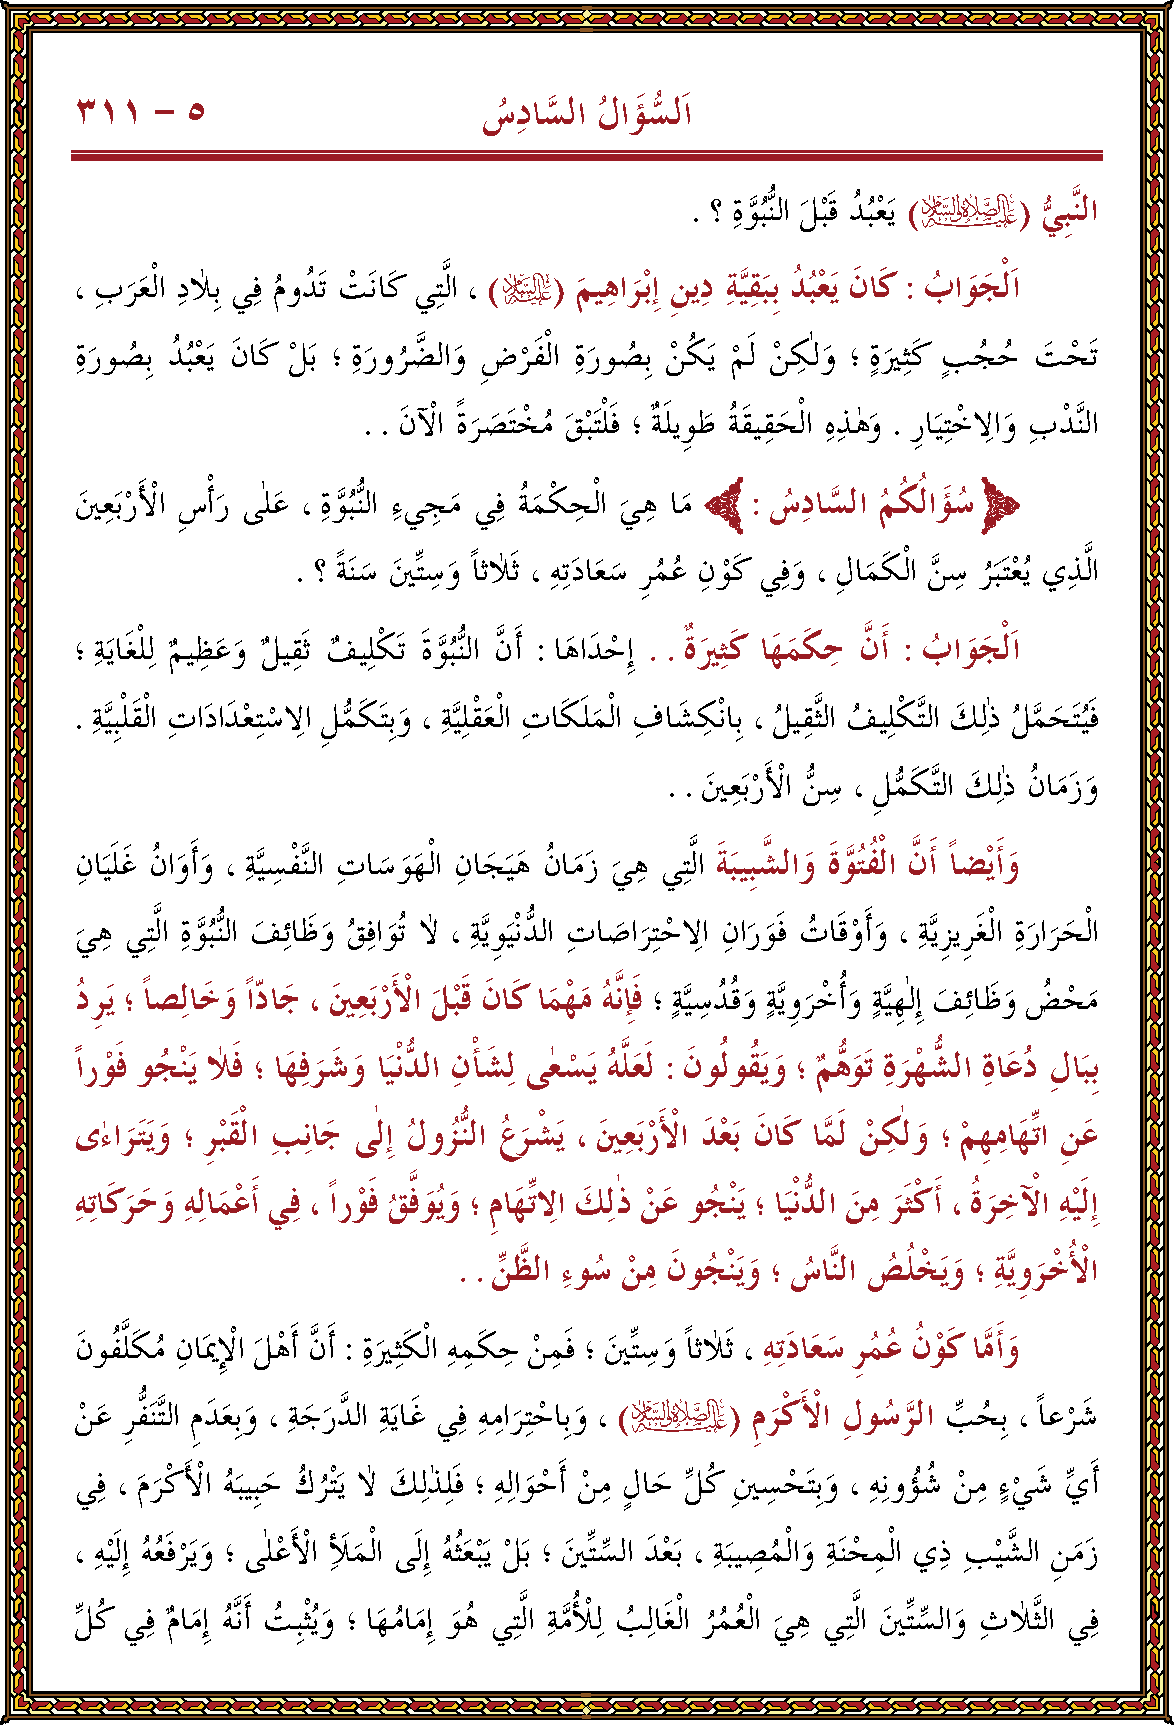 اَلسُّؤَالُ السَّادِسُ ٥ - ٣١١
النَّبِيُّ (عَلَيْهِ الصَّلَاةُ وَالسَّلَامُ) يَعْبُدُ قَبْلَ النُّبُوَّةِ ؟ .
اَلْجَوَابُ : كَانَ يَعْبُدُ بِبَقِيَّةِ دِينِ إِبْرَاهِيمَ (عَلَيْهِ السَّلَامُ) ، الَّتِي كَانَتْ تَدُومُ فِي بِلَادِ الْعَرَبِ ،
تَحْتَ حُجُبٍ كَثِيرَةٍ ؛ وَلٰكِنْ لَمْ يَكُنْ بِصُورَةِ الْفَرْضِ وَالضَّرُورَةِ ؛ بَلْ كَانَ يَعْبُدُ بِصُورَةِ
النَّدْبِ وَالِاخْتِيَارِ . وَهٰذِهِ الْحَقِيقَةُ طَوِيلَةٌ ؛ فَلْتَبْقَ مُخْتَصَرَةً الْآنَ . .
سُؤَالُكُمُ السَّادِسُ : مَا هِيَ الْحِكْمَةُ فِي مَجِيءِ النُّبُوَّةِ ، عَلٰى رَأْسِ الْأَرْبَعِينَ
الَّذِي يُعْتَبَرُ سِنَّ الْكَمَالِ ، وَفِي كَوْنِ عُمُرِ سَعَادَتِهِ ، ثَلَاثاً وَسِتِّينَ سَنَةً ؟ .
اَلْجَوَابُ : أَنَّ حِكَمَهَا كَثِيرَةٌ . . إِحْدَاهَا : أَنَّ النُّبُوَّةَ تَكْلِيفٌ ثَقِيلٌ وَعَظِيمٌ لِلْغَايَةِ ؛
فَيُتَحَمَّلُ ذٰلِكَ التَّكْلِيفُ الثَّقِيلُ ، بِانْكِشَافِ الْمَلَكَاتِ الْعَقْلِيَّةِ ، وَبِتَكَمُّلِ الِاسْتِعْدَادَاتِ الْقَلْبِيَّةِ .
وَزَمَانُ ذٰلِكَ التَّكَمُّلِ ، سِنُّ الْأَرْبَعِينَ . .
وَأَيْضاً أَنَّ الْفُتُوَّةَ وَالشَّبِيبَةَ الَّتِي هِيَ زَمَانُ هَيَجَانِ الْهَوَسَاتِ النَّفْسِيَّةِ ، وَأَوَانُ غَلَيَانِ
الْحَرَارَةِ الْغَرِيزِيَّةِ ، وَأَوْقَاتُ فَوَرَانِ الِاحْتِرَاصَاتِ الدُّنْيَوِيَّةِ ، لَا تُوَافِقُ وَظَائِفَ النُّبُوَّةِ الَّتِي هِيَ
مَحْضُ وَظَائِفَ إِلٰهِيَّةٍ وَأُخْرَوِيَّةٍ وَقُدُسِيَّةٍ ؛ فَإِنَّهُ مَهْمَا كَانَ قَبْلَ الْأَرْبَعِينَ ، جَادّاً وَخَالِصاً ؛ يَرِدُ
بِبَالِ دُعَاةِ الشُّهْرَةِ تَوَهُّمٌ ؛ وَيَقُولُونَ : لَعَلَّهُ يَسْعٰى لِشَأْنِ الدُّنْيَا وَشَرَفِهَا ؛ فَلَا يَنْجُو فَوْراً
عَنِ اتِّهَامِهِمْ ؛ وَلٰكِنْ لَمَّا كَانَ بَعْدَ الْأَرْبَعِينَ ، يَشْرَعُ النُّزُولُ إِلٰى جَانِبِ الْقَبْرِ ؛ وَيَتَرَاءٰى
إِلَيْهِ الْآخِرَةُ ، أَكْثَرَ مِنَ الدُّنْيَا ؛ يَنْجُو عَنْ ذٰلِكَ الِاتِّهَامِ ؛ وَيُوَفَّقُ فَوْراً ، فِي أَعْمَالِهِ وَحَرَكَاتِهِ
الْأُخْرَوِيَّةِ ؛ وَيَخْلُصُ النَّاسُ ؛ وَيَنْجُونَ مِنْ سُوءِ الظَّنِّ . .
وَأَمَّا كَوْنُ عُمُرِ سَعَادَتِهِ ، ثَلَاثاً وَسِتِّينَ ؛ فَمِنْ حِكَمِهِ الْكَثِيرَةِ : أَنَّ أَهْلَ الْإِيمَانِ مُكَلَّفُونَ
شَرْعاً ، بِحُبِّ الرَّسُولِ الْأَكْرَمِ (عَلَيْهِ الصَّلَاةُ وَالسَّلَامُ) ، وَبِاحْتِرَامِهِ فِي غَايَةِ الدَّرَجَةِ ، وَبِعَدَمِ التَّنَفُّرِ عَنْ
أَيِّ شَيْءٍ مِنْ شُؤُونِهِ ، وَبِتَحْسِينِ كُلِّ حَالٍ مِنْ أَحْوَالِهِ ؛ فَلِذٰلِكَ لَا يَتْرُكُ حَبِيبَهُ الْأَكْرَمَ ، فِي
زَمَنِ الشَّيْبِ ذِي الْمِحْنَةِ وَالْمُصِيبَةِ ، بَعْدَ السِّتِّينَ ؛ بَلْ يَبْعَثُهُ إِلَى الْمَلَأِ الْأَعْلٰى ؛ وَيَرْفَعُهُ إِلَيْهِ ،
فِي الثَّلَاثِ وَالسِّتِّينَ الَّتِي هِيَ الْعُمُرُ الْغَالِبُ لِلْأُمَّةِ الَّتِي هُوَ إِمَامُهَا ؛ وَيُثْبِتُ أَنَّهُ إِمَامٌ فِي كُلِّ